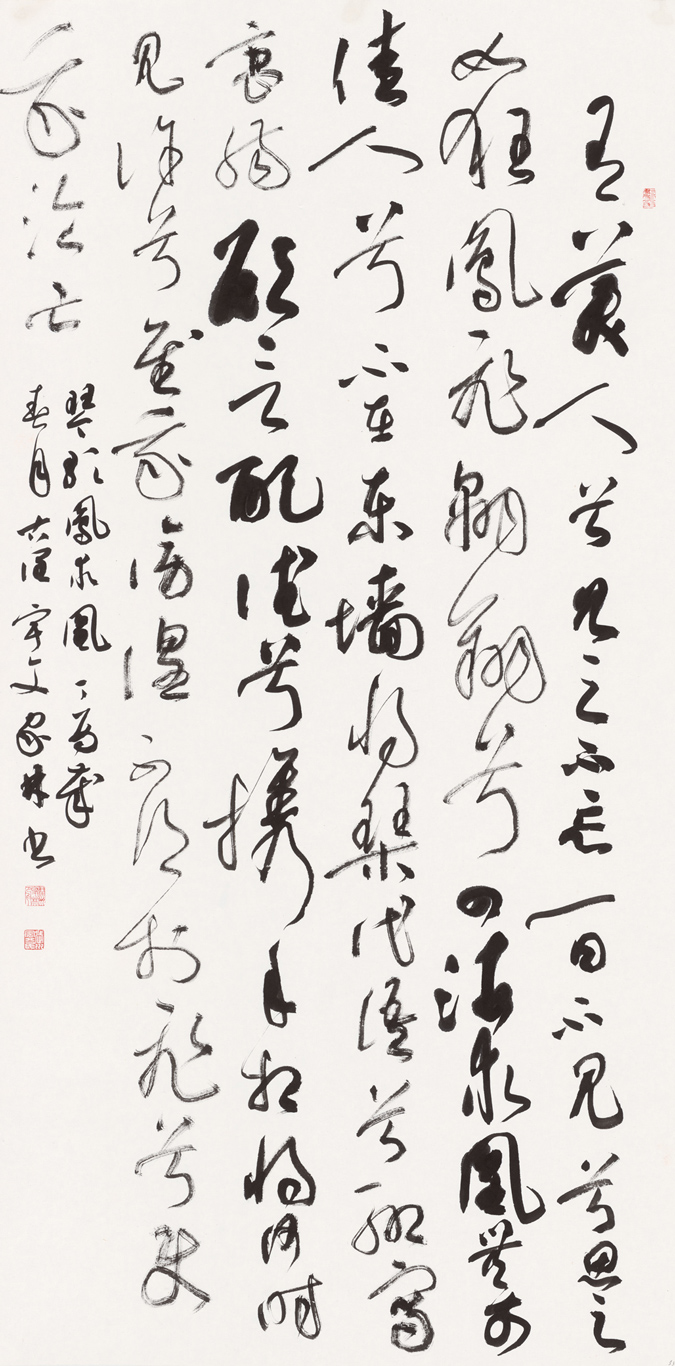 有美人兮見之不忘一日不見兮思之
如狂鳳飛翱翔兮四海求凰無奈
佳人兮不在東墻將琴代語兮聊寫
衷腸願言配德兮攜手相將何時
見許兮慰我徬徨不得於飛兮使
我淪亡
琴歌鳳求凰丁酉歲
春月古潤宇文家林書